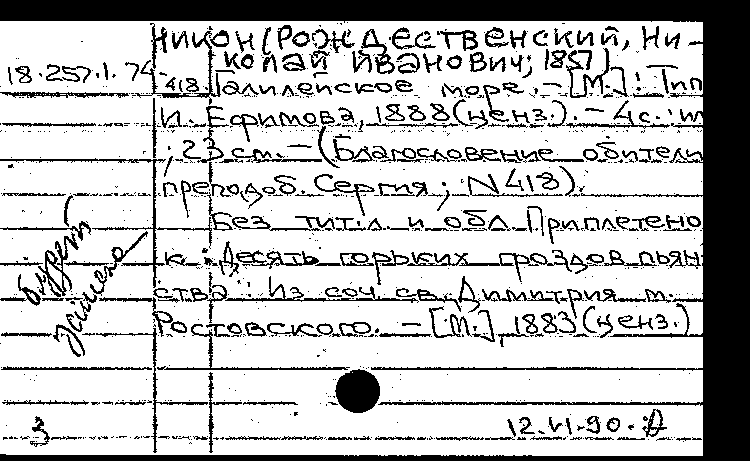 Никон (Рождественский, Ни-
колай Иванович; 1857)
18.257.1.74-418. Галилейское море. – [М.]: Тип
И. Ефимова, 1888 (ценз.). – 4 с.:
; 23 см. – (Благословение обители
преподоб. Сергия; N 418).
Без тит.л. и обл. Приплетено
к: Десять горьких гроздов пьян
ства: Из соч. св. Димитрия м.
Ростовского. – [М.], 1883 (ценз.)
будет
замена
3
12.VI.90.